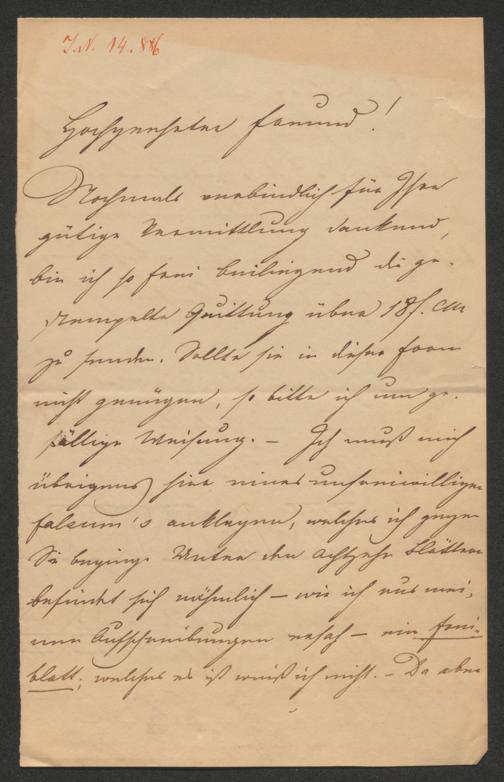 J.N. 14.886
Hochgeehrter Freund!
Nochmals verbindlich für Ihre
gütige Vermittlung dankend,
bin ich so frei beiliegend die ge-
stempelte Quittung über 18 f. CM
zu senden. Sollte sie in dieser Form
nicht genügen, so bitte ich um ge-
fällige Weisung. – Ich muß mich
übrigens hier eines unfreiwilligen
falsum's anklagen, welches ich gegen
Sie beging. Unter den achtzehn Blättern
befindet sich nähmlich – wie ich aus mei-
nen Aufschreibungen ersah – ein Frei-
blatt; welches es ist weiß ich nicht. – Da aber